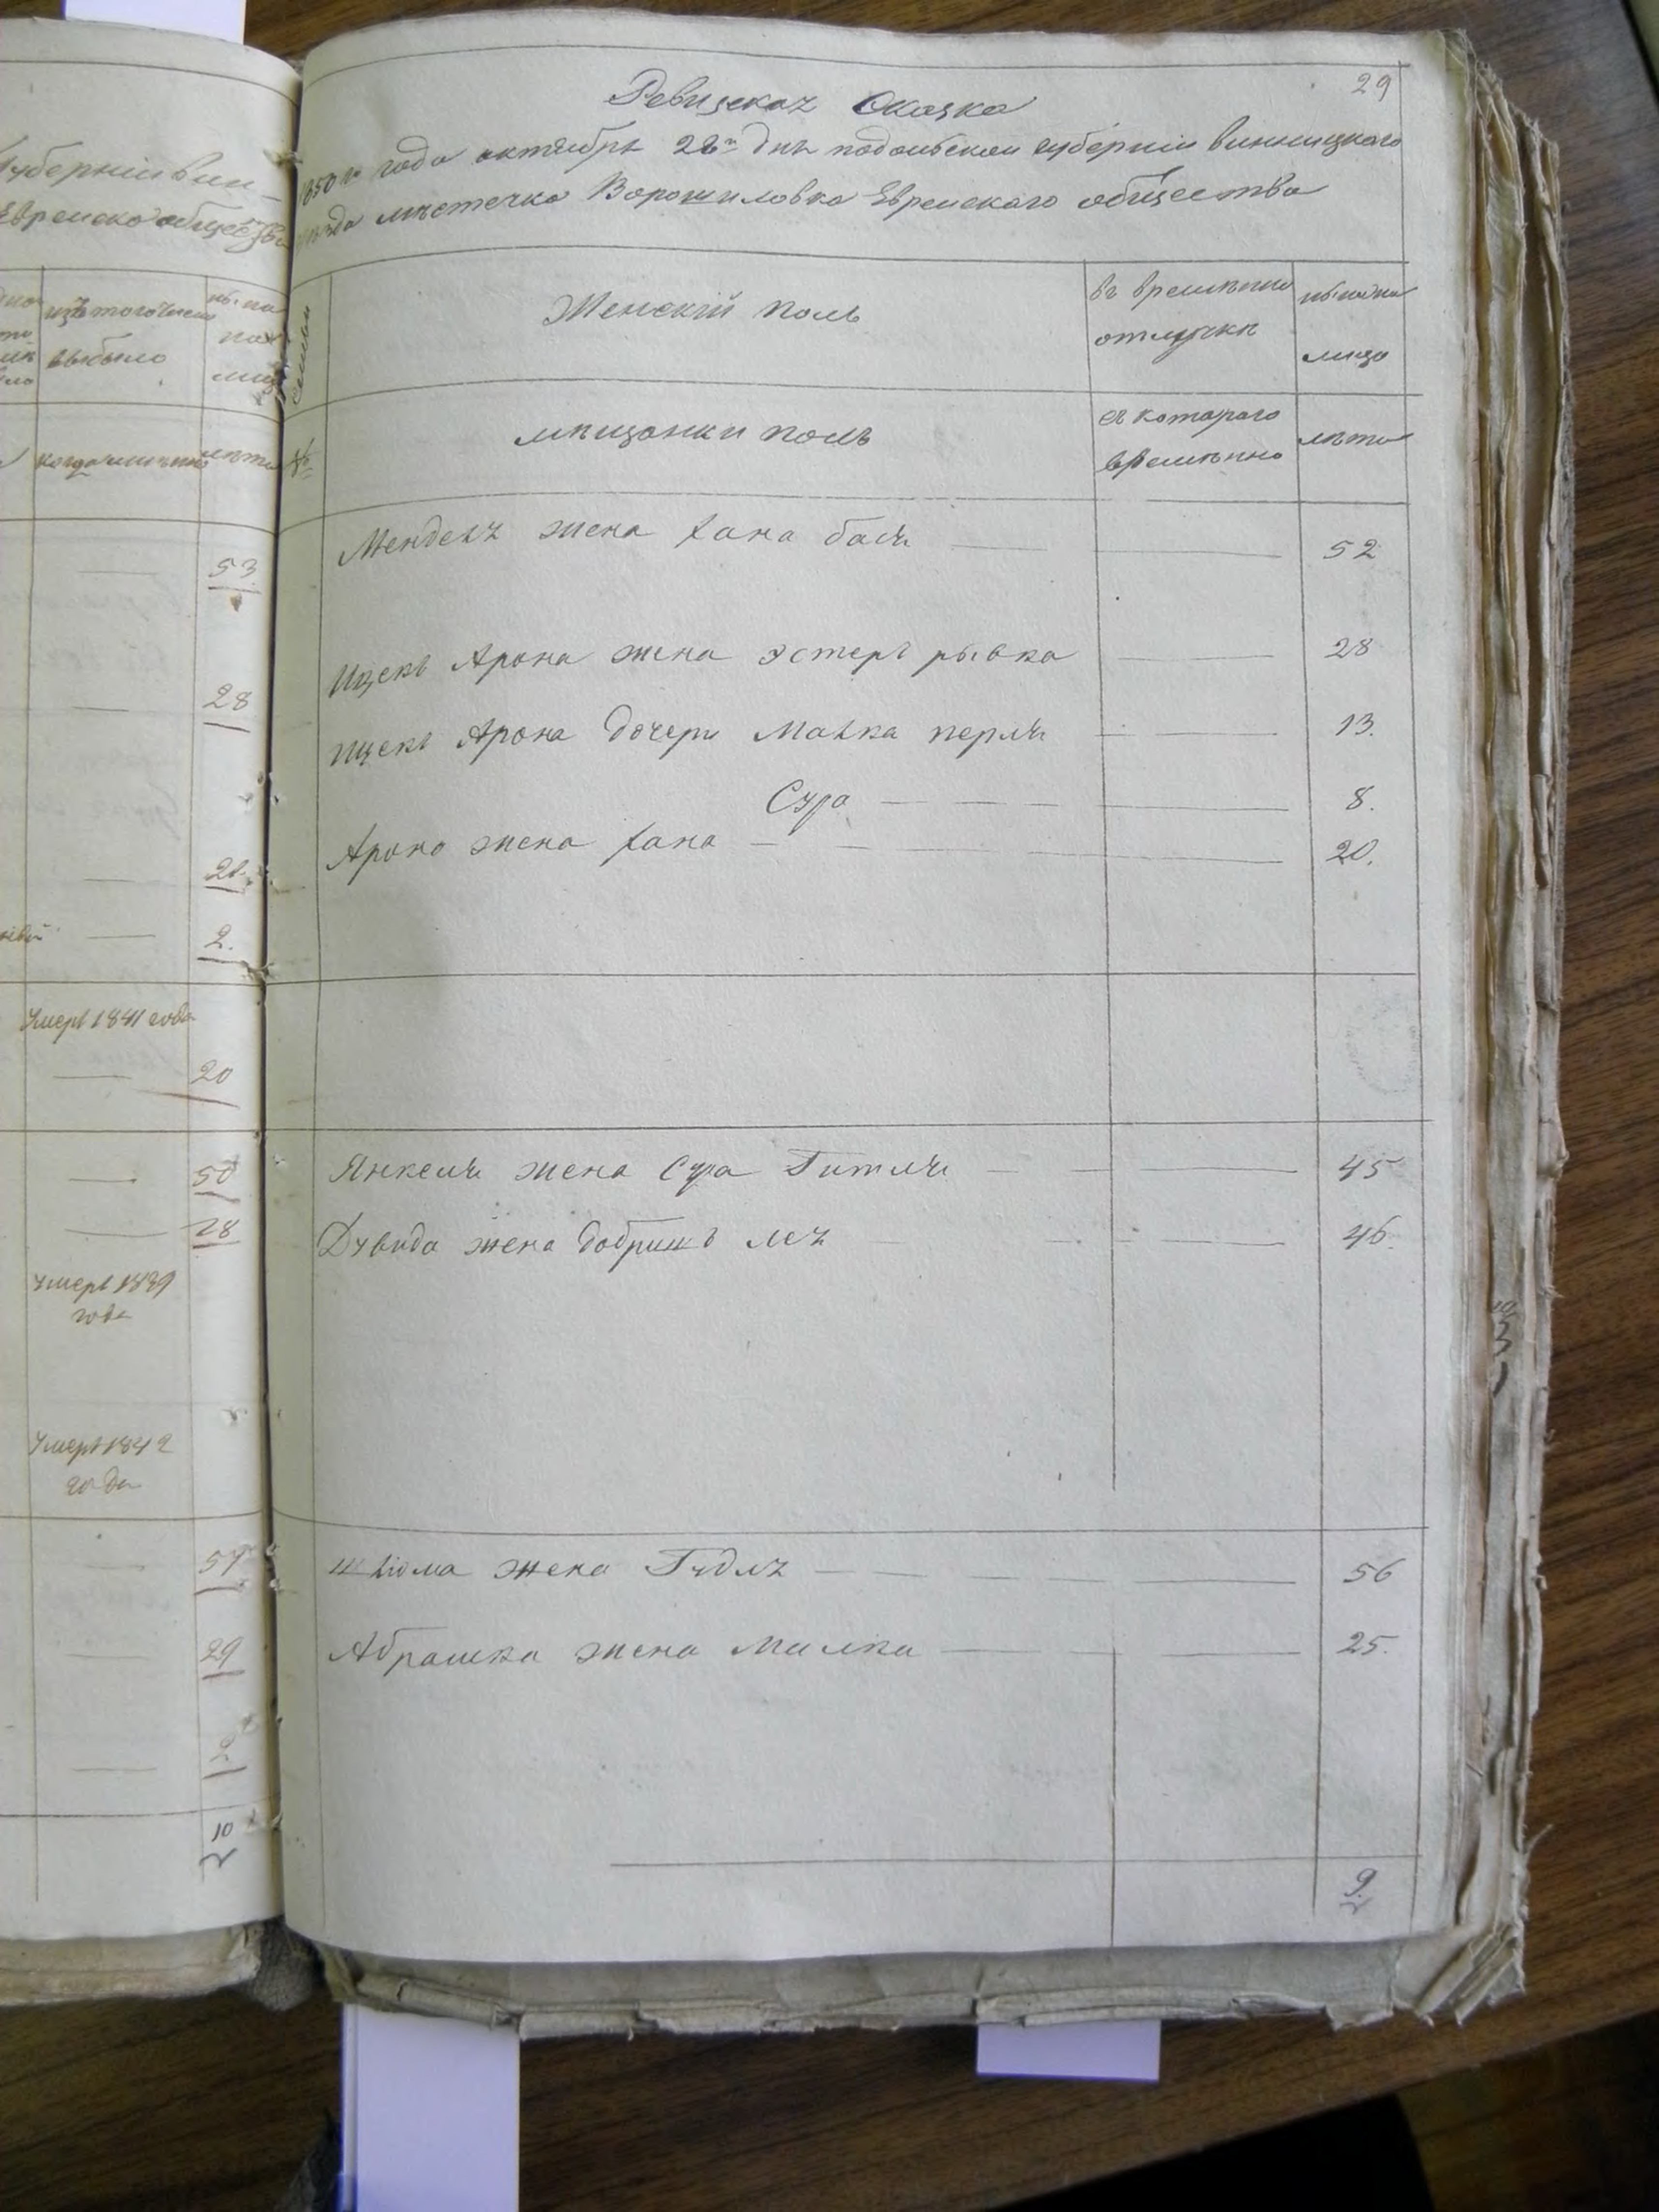 губерніи Вин
Еврейско общества
изъ того числа
выбыло
лѣта
53
28
21.
2.
Умеръ 1841 года
20
50
28
умеръ 1839
года
Умеръ 1842
года
57
29
10
29
Ревизская Сказка
1850 го года октября 28го дня подольской губерніи винницкого
уѣзда мѣстечка Ворошиловка Еврейского общества
Женскій поль
въ времѣнно
отлучки
лицо
№
мѣщанки поль
съ которого
времѣнно
лѣта
Мендель жена хана бася 52
Ицекъ Арона жена эстеръ рывка 28
ицекъ Арона дочери Малка перля 13.
Сура 8.
Арона жена хана 20.
Янкеля жена Сура Гитля 45
Дувида жена добришъ лея 46.
шліома жена Гудля 56
Абрашка жена милка 25.
9